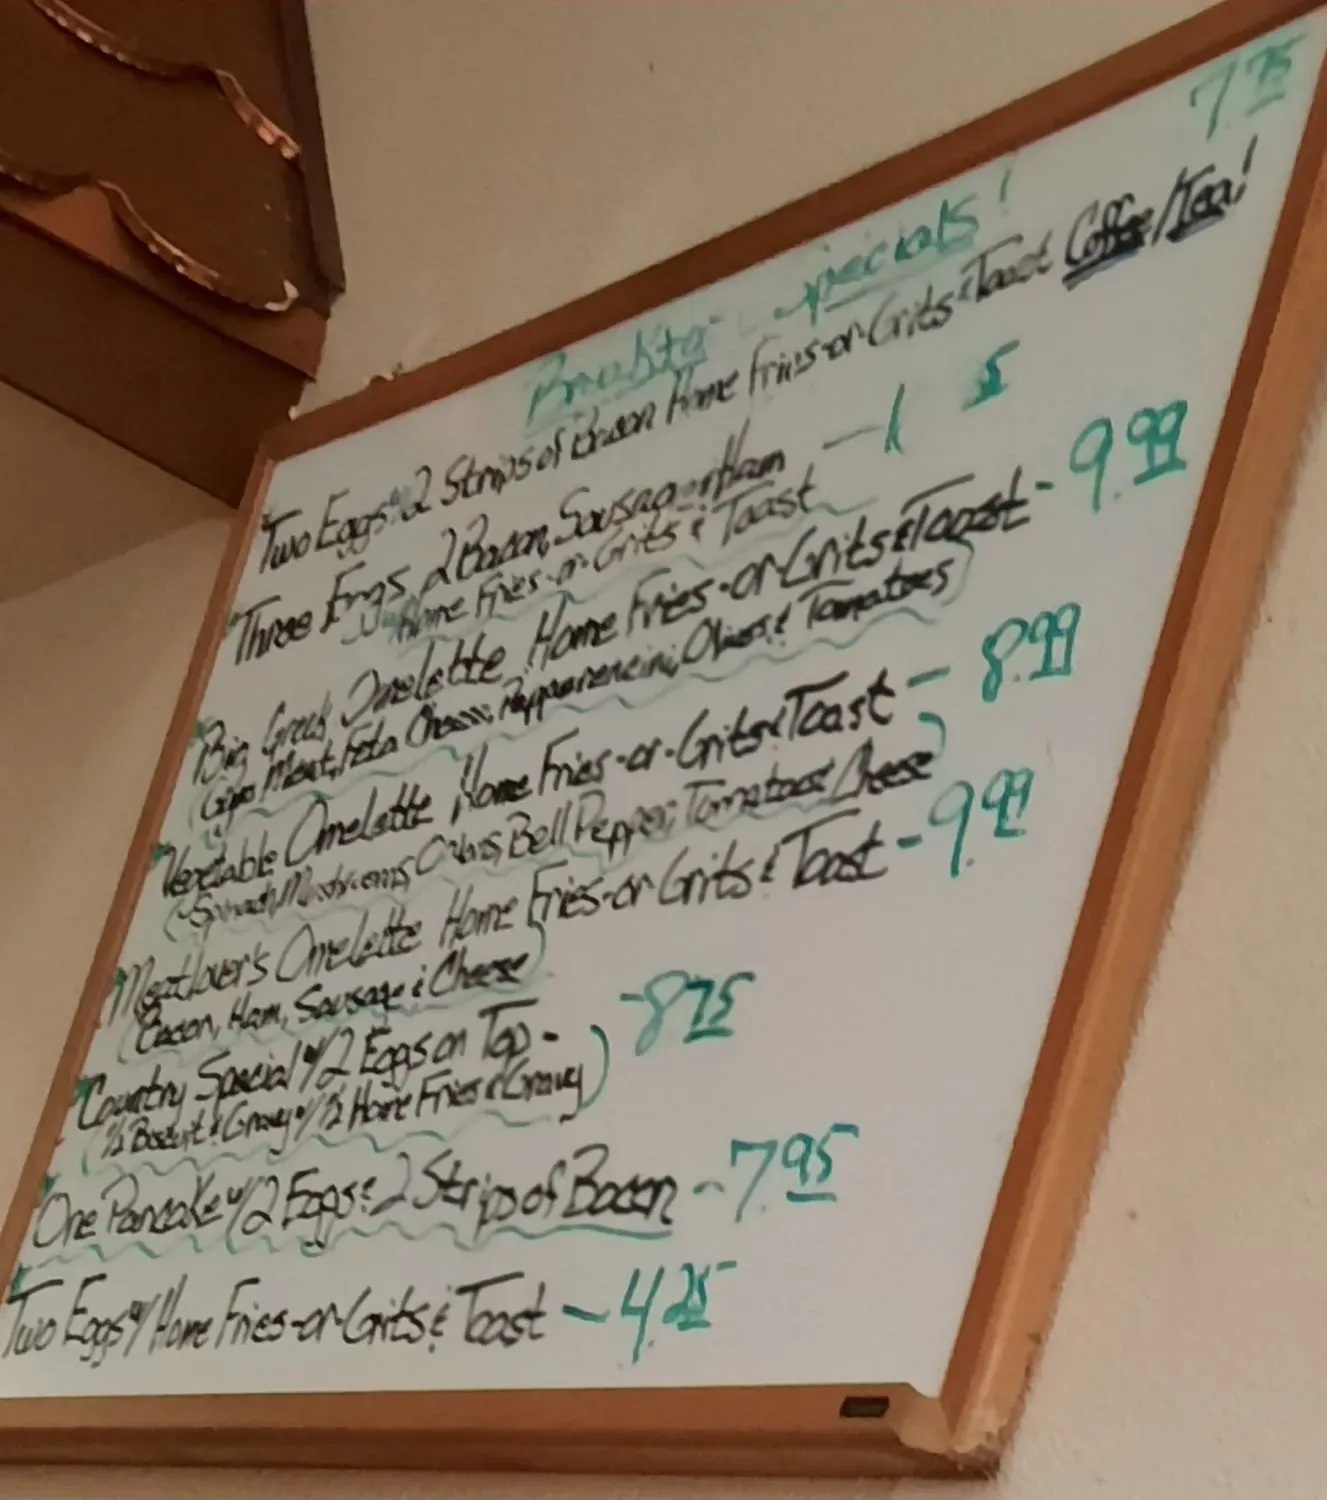 Breakfast Specials!
Two Eggs w/2 Strips of Bacon Home Fries-or-Grits & Toast Coffee/Tea! 7.75
Three Eggs, 2 Bacon, Sausage or Ham
Home Fries-or-Grits & Toast
Big Greek Omelette Home Fries-or-Grits & Toast - 9.99
(Gyro Meat, Feta Cheese, Olives & Tomatoes)
Vegetable Omelette Home Fries-or-Grits & Toast - 8.99
(Spinach, Mushrooms, Bell Pepper, Tomatoes & Cheese)
Meatlover's Omelette Home Fries-or-Grits & Toast - 9.99
(Bacon, Ham, Sausage & Cheese)
Country Special w/2 Eggs on Top - 8.75
(1/2 Biscuit & Gravy w/ 1/2 Home Fries & Gravy)
One Pancake w/2 Eggs & 2 Strips of Bacon - 7.95
Two Eggs w/ Home Fries-or-Grits & Toast - 4.25